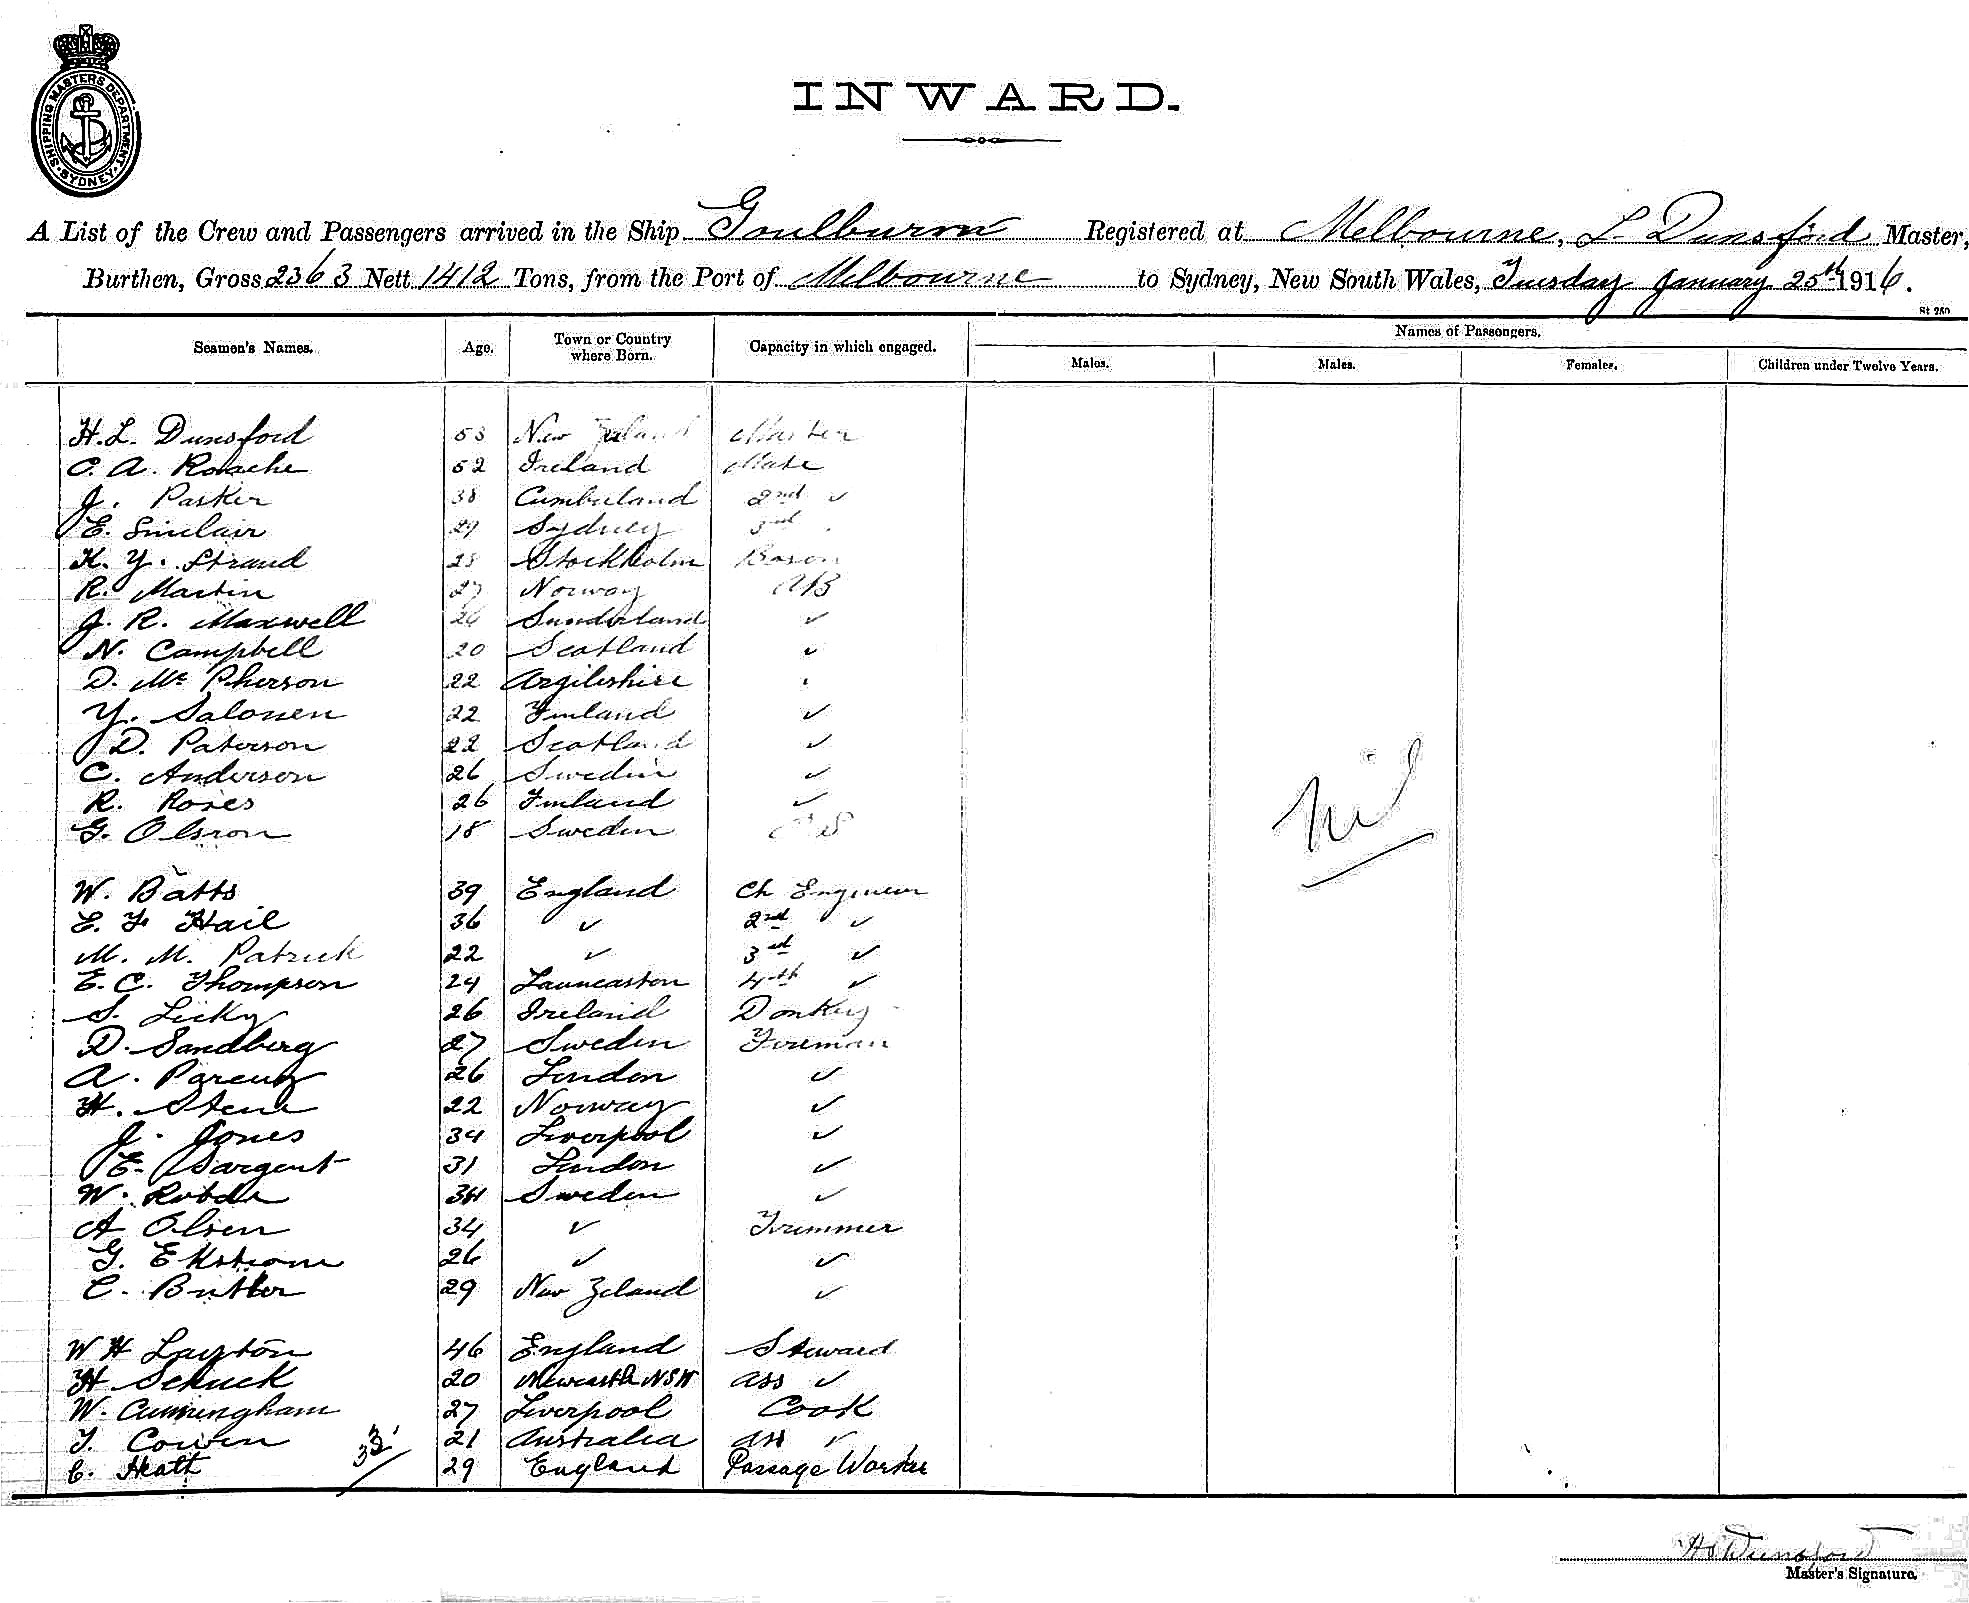 SHIPPING MASTERS DEPARTMENT SYDNEY
INWARD.
A List of the Crew and Passengers arrived in the Ship Goulburn Registered at Melbourne, L. Dunsford Master,
Burthen, Gross 2363 Nett 1412 Tons, from the Port of Melbourne to Sydney, New South Wales, Tuesday January 25th 1916.
St 250
Seamen's Names. Age. Town or Country where Born. Capacity in which engaged. Names of Passengers.
Males. Males. Females. Children under Twelve Years.
H. L. Dunsford 53 New Zeland Master
C. A. Roache 52 Ireland Mate
J. Parker 38 Cumberland 2nd ✓
E. Sinclair 29 Sydney 3rd
K. Y. Strand 28 Stockholm Bosun
R. Martin 27 Norway AB
J. R. Maxwell 26 Sunderland ✓
N. Campbell 20 Scotland ✓
D. Mc Pherson 22 Argileshire
Y. Salonen 22 Finland ✓
D. Paterson 22 Scotland ✓
C. Anderson 26 Sweden ✓
R. 26 Finland ✓
G. Olsson 18 Sweden
Nil
W. Batts 39 England Ch Engineer
E. F. Hail 36 ✓ 2nd ✓
M. M. Patrick 22 ✓ 3rd ✓
E. C. Thompson 24 Launceston 4th ✓
S. Licky 26 Ireland Donkey
D. Sandberg 27 Sweden Fireman
A. 26 London ✓
H. Stene 22 Norway ✓
J. Jones 34 Liverpool ✓
E. Sargent 31 London ✓
W. 34 Sweden ✓
A Olsen 34 ✓ Trimmer
G. Ekstrom 26 ✓ ✓
C. Butler 29 New Zeland ✓
W H Layton 46 England Steward
H Schuck 20 Newcastle NSW Ass ✓
W. Cunningham 27 Liverpool Cook
T. Cowen 33 21 Australia Ass ✓
C. Heath 29 England Passage Worker
H L Dunsford
Master's Signature.